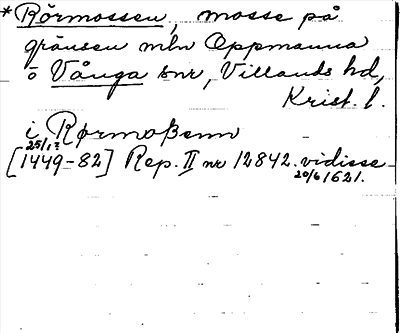 *Rörmossen, mosse på
gränsen mln Oppmanna
o Vånga snr, Villands hd,
Krist. l.
i Rørmoßenn
25/1?
[1449-82] Rep. II nr 12842. vidisse
20/6 1621.